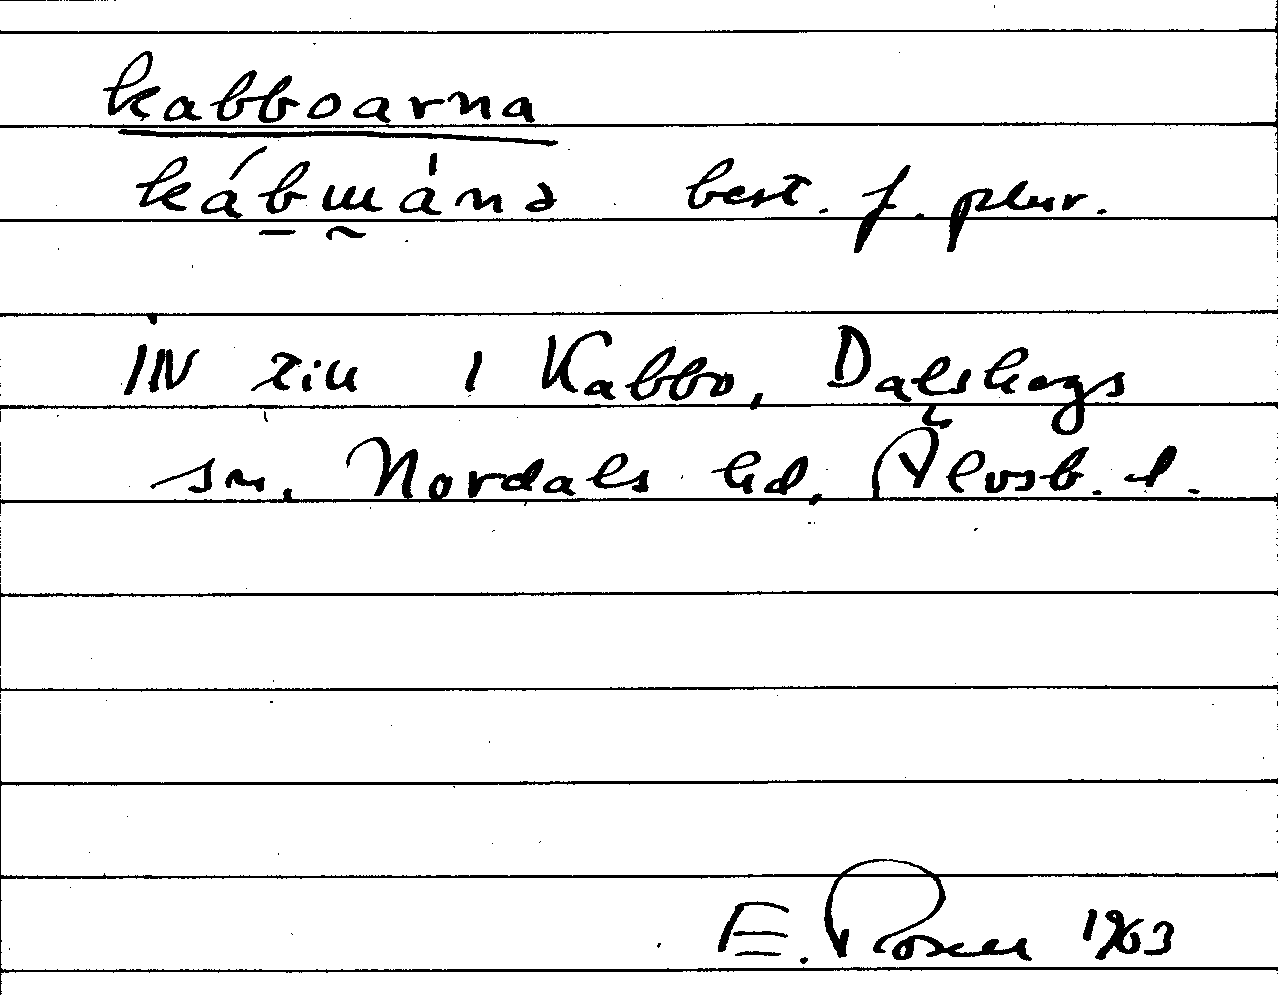 kabboarna
kábɯánə best. f. plur.
inv till i Kabbo, Dalskogs
sn. Nordals hd, Älvsb. l.
E. Rosell 1963